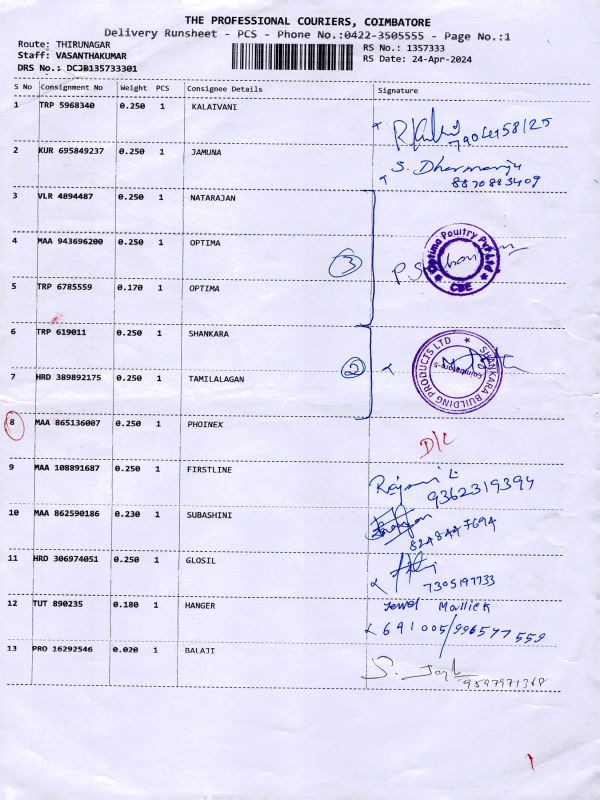 THE PROFESSIONAL COURIERS, COIMBATORE
Delivery Runsheet - PCS - Phone No.:0422-3505555 - Page No.:1
Route: THIRUNAGAR
RS No.: 1357333
Staff: VASANTHAKUMAR
RS Date: 24-Apr-2024
DRS No.: DCJB135733301
S No Consignment No Weight PCS Consignee Details Signature
1 TRP 5968340 0.250 1 KALAIVANI
2 KUR 695849237 0.250 1 JAMUNA S. Dharmaraju
8870883409
3 VLR 4894487 0.250 1 NATARAJAN
4 MAA 943696200 0.250 1 OPTIMA 3 Optima Poultry Pvt Ltd
CBE
5 TRP 6785559 0.170 1 OPTIMA
6 TRP 619011 0.250 1 SHANKARA 2 SHANKARA BUILDING PRODUCTS LTD
7 HRD 389892175 0.250 1 TAMILALAGAN
8 MAA 865136007 0.250 1 PHOINEX D/L
9 MAA 108891687 0.250 1 FIRSTLINE Rajani L
9362319394
10 MAA 862590186 0.230 1 SUBASHINI
8248447694
11 HRD 306974051 0.250 1 GLOSIL
7305197733
12 TUT 890235 0.180 1 HANGER Jewel Mallick
641005/996577559
13 PRO 16292546 0.020 1 BALAJI
9597971368